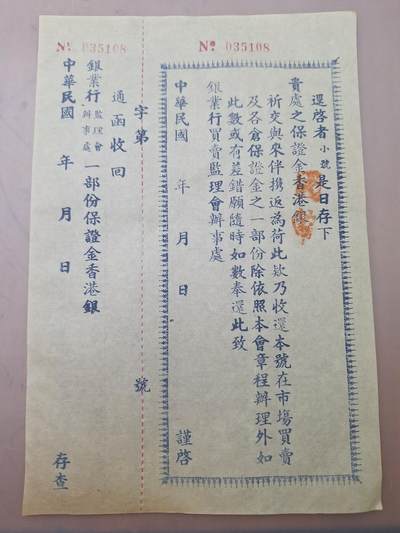 Nº 035108
逕啓者小號是日存下
貴處之保證金香港銀
祈交與來伴携返為荷此欵乃收還本號在市塲買賣
及各倉保證金之一部份除依照本會章程辦理外如
此數或有差錯願隨時如數奉還此致
銀業行買賣監理會辦事處
中華民國 年 月 日 謹啓
Nº 035108
字第 號
通函收回
銀業行監理會辦事處一部份保證金香港銀
中華民國 年 月 日 存查